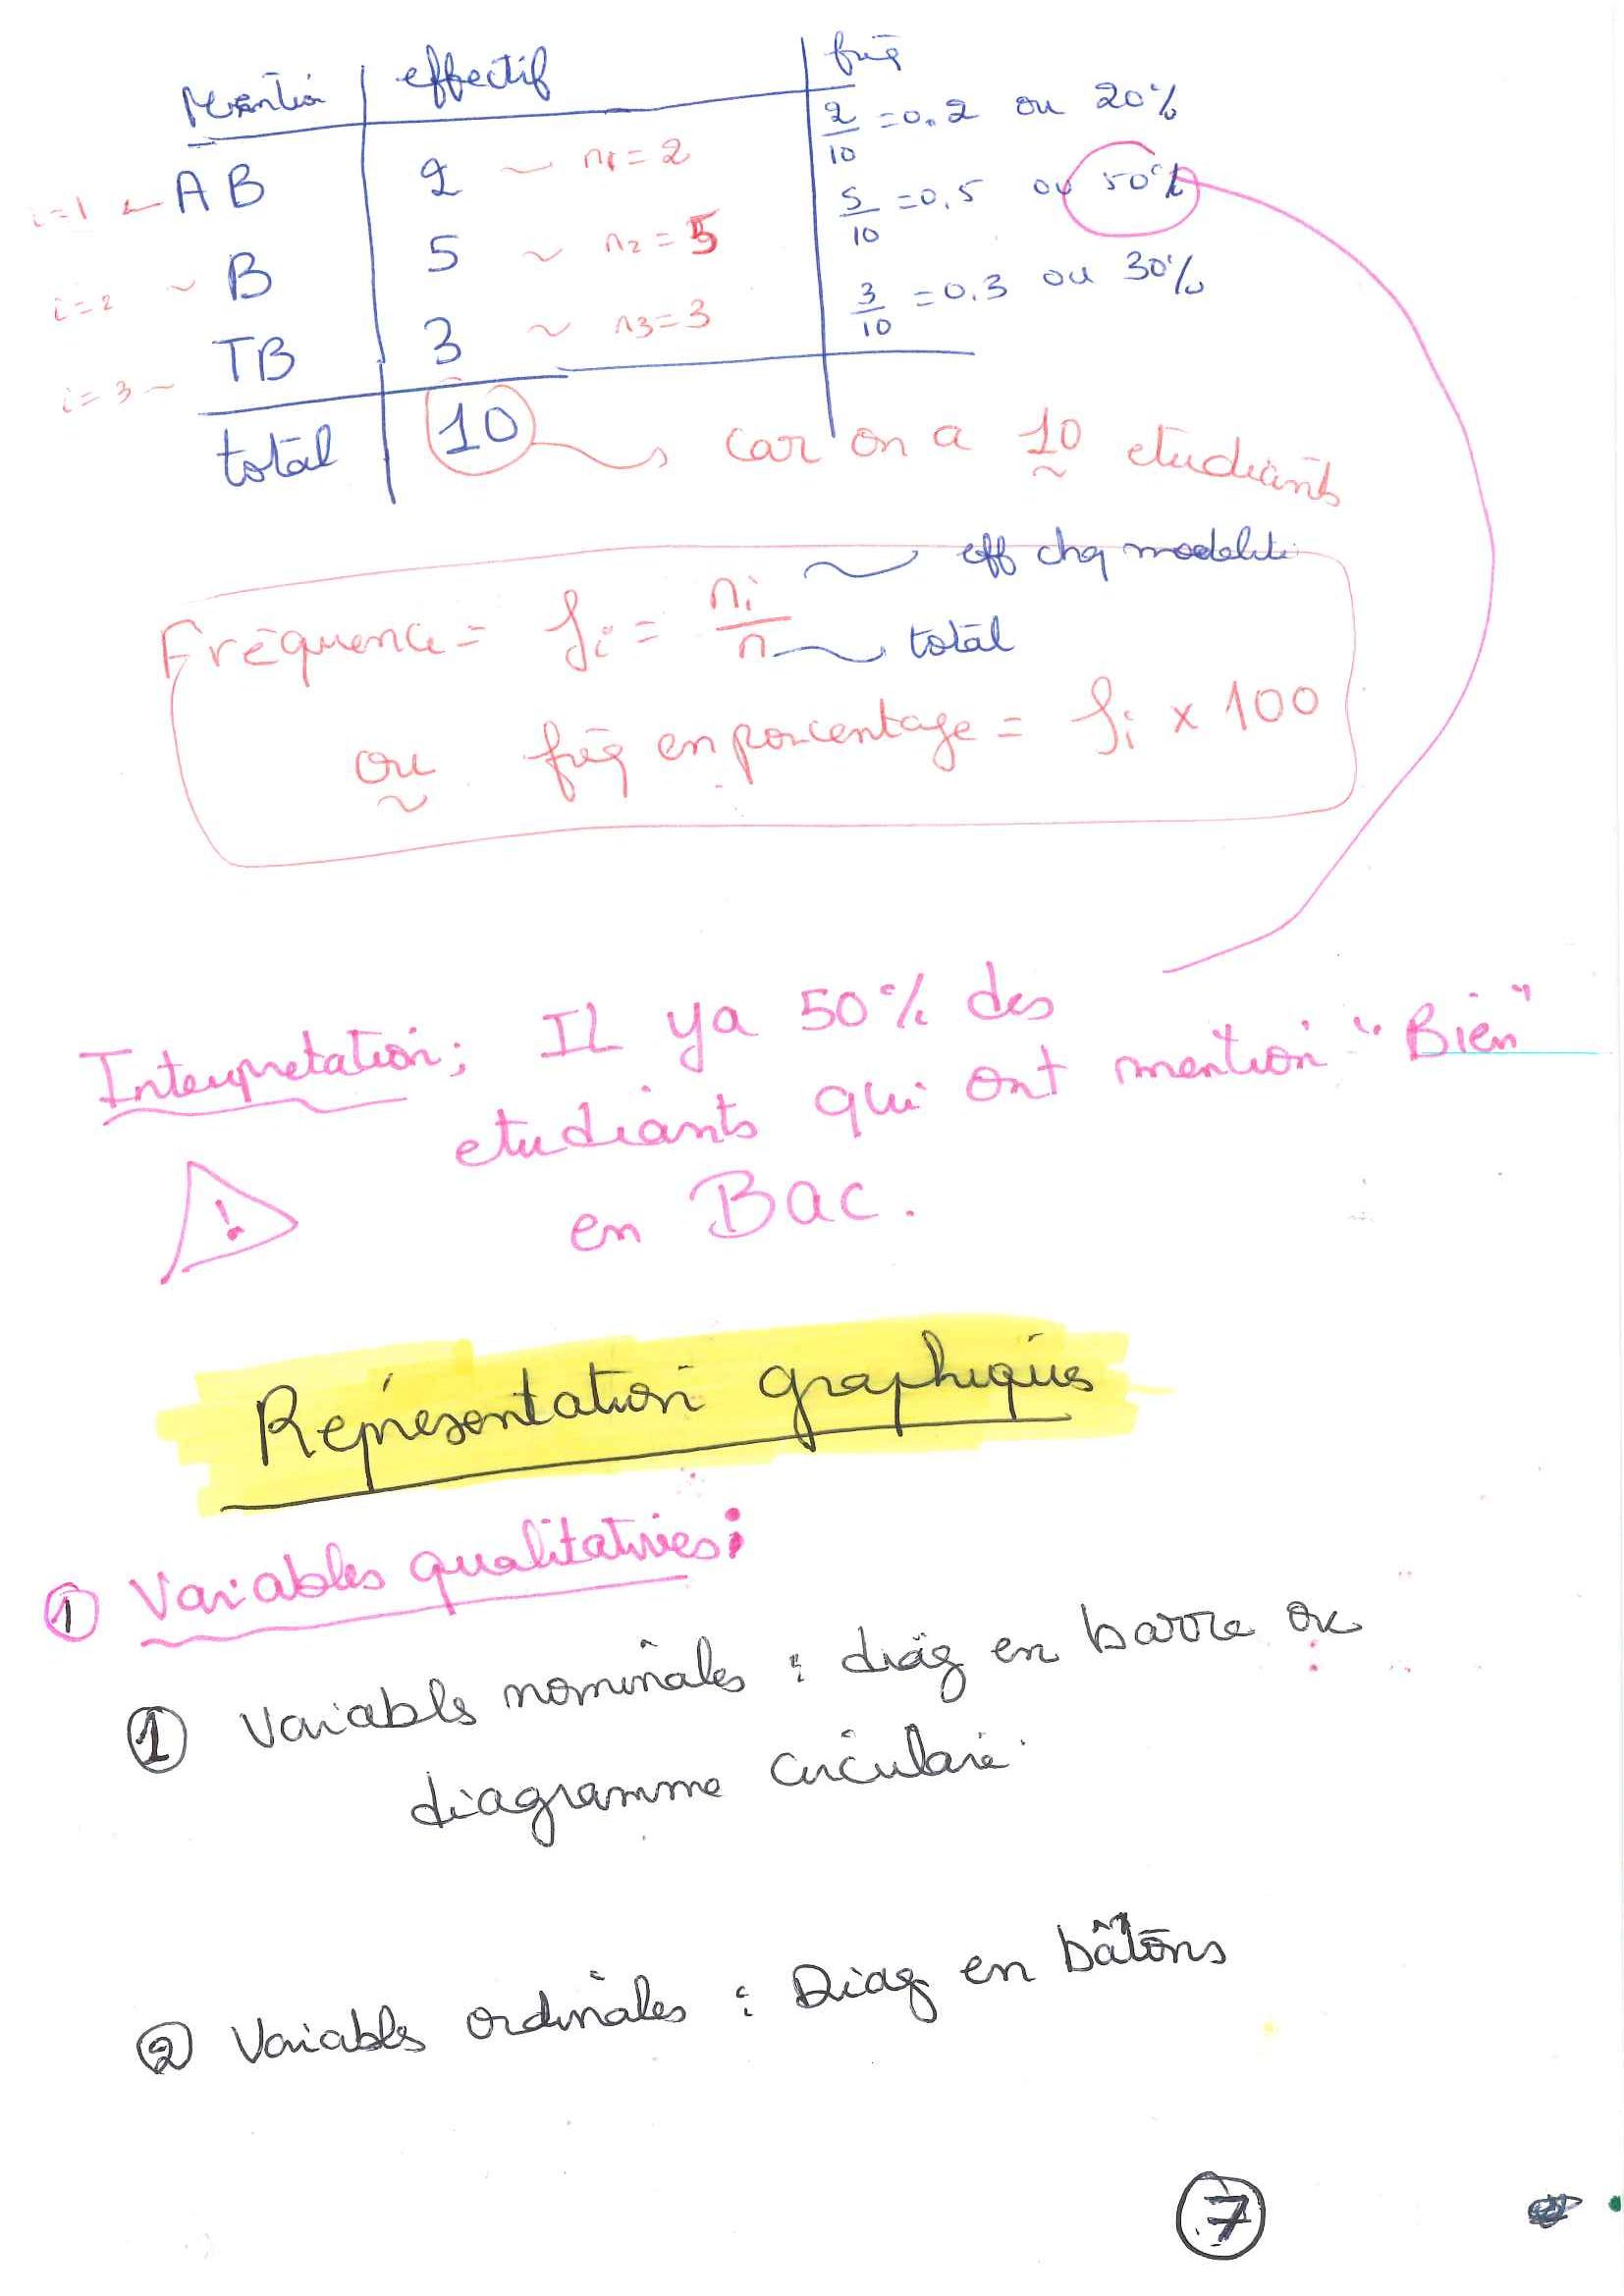 Mention effectif frq
i=1 AB 2 ~ n1 = 2 2/10 = 0.2 ou 20%
i=2 ~ B 5 ~ n2 = 5 5/10 = 0.5 ou 50%
i=3 ~ TB 3 ~ n3 = 3 3/10 = 0.3 ou 30%
total 10 car on a 10 etudiants
eff chq modalité
Fréquence = fi = ni/n total
ou frq en pourcentage = fi x 100
Interpretation; Il ya 50% des
etudiants qui ont mention "Bien"
en Bac.
!
Représentation graphiques
① Variables qualitatives:
① Variables nominales : diag en barre ou
diagramme circulaire
② Variables ordinales : Diag en bâtons
7